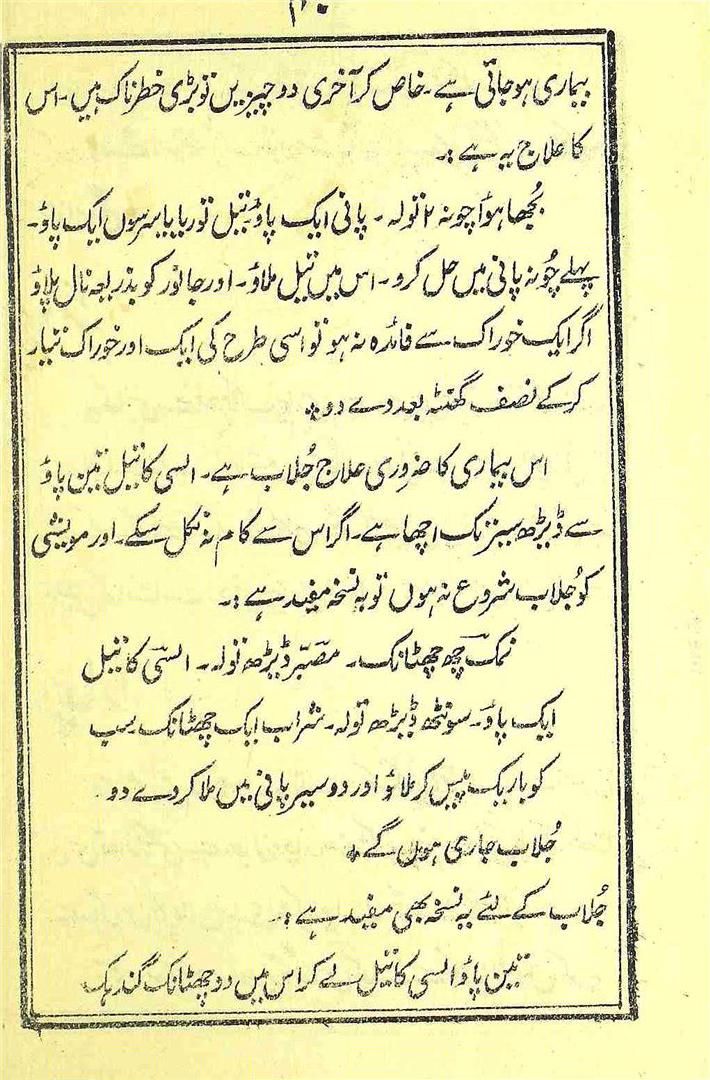 ۳۰
بیماری ہو جاتی ہے۔ خاص کر آخری دو چیزیں تو بڑی خطرناک ہیں۔ اس
کا علاج یہ ہے :۔
بُجھا ہوُا چونہ ۲ تولہ۔ پانی ایک پاؤ۔ تیل توریا یا سرسوں ایک پاؤ۔
پہلے چُونہ پانی میں حل کرو۔ اس میں تیل ملاؤ۔ اور جانور کو بذریعہ نال پلاؤ
اگر ایک خوراک سے فائدہ نہ ہو تو اسی طرح کی ایک اور خوراک تیار
کر کے نصف گھنٹہ بعد دے دو ۔
اس بیماری کا ضروری علاج جُلاب ہے۔ السی کا تیل تین پاؤ
سے ڈیڑھ سیر تک اچھا ہے۔ اگر اس سے کام نہ نکل سکے۔ اور مویشی
کو جُلاب شروع نہ ہوں تو یہ نسخہ مفید ہے :۔
نمک چھ چھٹانک۔ مصبّر ڈیڑھ تولہ۔ السی کا تیل
ایک پاؤ۔ سونٹھ ڈیڑھ تولہ۔ شراب ایک چھٹانک سب
کو باریک پیس کر ملاؤ اور دو سیر پانی میں ملا کر دے دو
جُلاب جاری ہوں گے ۔
جُلاب کے لئے یہ نسخہ بھی مفید ہے :۔
تین پاؤ السی کا تیل لے کر اس میں دو چھٹانک گندہک